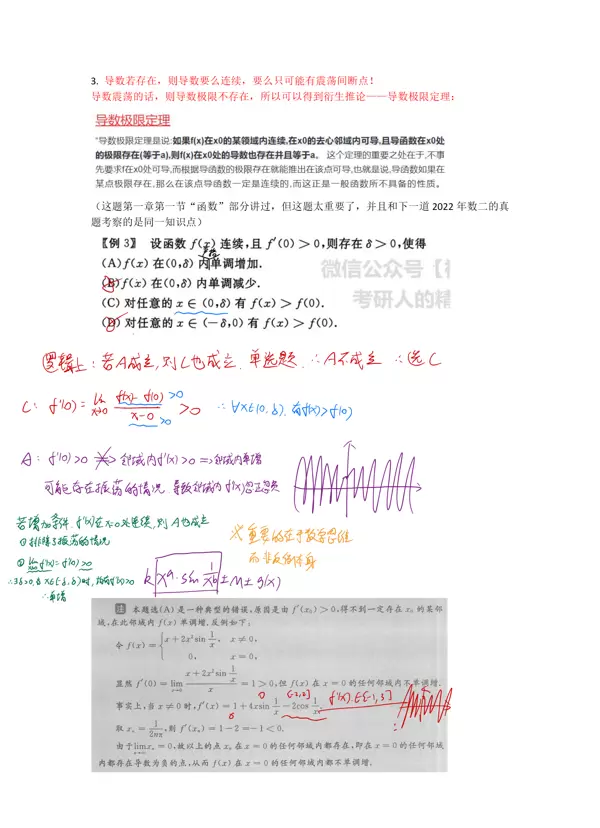 3. 导数若存在，则导数要么连续，要么只可能有震荡间断点！
导数震荡的话，则导数极限不存在，所以可以得到衍生推论——导数极限定理：
导数极限定理
"导数极限定理是说:如果f(x)在x0的某领域内连续,在x0的去心邻域内可导,且导函数在x0处
的极限存在(等于a),则f(x)在x0处的导数也存在并且等于a。 这个定理的重要之处在于,不事
先要求f在x0处可导,而根据导函数的极限存在就能推出在该点可导,也就是说,导函数如果在
某点极限存在,那么在该点导函数一定是连续的,而这正是一般函数所不具备的性质。
（这题第一章第一节“函数”部分讲过，但这题太重要了，并且和下一道 2022 年数二的真
题考察的是同一知识点）
【例 3】 设函数 f(x) 连续,且 f′(0) > 0,则存在 δ > 0,使得
(A) f(x) 在(0,δ) 内单调增加.
(B) f(x) 在(0,δ) 内单调减少.
(C) 对任意的 x ∈ (0,δ) 有 f(x) > f(0).
(D) 对任意的 x ∈ (−δ,0) 有 f(x) > f(0).
微信公众号【
考研人的精
逻辑上：若A成立,则C也成立. 单选题. ∴A不成立 ∴选C
C: f'(0) = lim x→0 f(x)-f(0) / x-0 > 0 ∴ ∀x∈(0,δ). 有f(x)>f(0)
>0
>0
A: f'(0)>0 ⇏ 邻域内f'(x)>0 ⇒邻域内单增
可能存在振荡的情况. 导数邻域内f'(x)忽正忽负
若增加条件. f'(x)在x=0处连续, 则A也成立
① 排除了振荡的情况
② lim f'(x) = f'(0) >0
∴∃δ>0, 当x∈(-δ,δ)时, 均有f'(x)>0
∴单增
※重要的在于数学思维
而非反例本身
k x^a · sin 1/x^b ± M ± g(x)
注 本题选(A) 是一种典型的错误,原因是由 f′(x₀) > 0,得不到一定存在 x₀ 的某邻
域,在此邻域内 f(x) 单调增,反例如下:
令 f(x) = { x + 2x² sin 1/x, x ≠ 0,
0, x = 0,
显然 f′(0) = lim x→0 (x + 2x² sin 1/x) / x = 1 > 0,但 f(x) 在 x = 0 的任何邻域内不单调增.
事实上,当 x ≠ 0 时, f′(x) = 1 + 4x sin 1/x − 2cos 1/x,
0 [-2,2] f'(x)∈[-1,3]
取 xₙ = 1/2nπ, 则 f′(xₙ) = 1 − 2 = −1 < 0.
由于 lim xₙ = 0,故以上的点 xₙ 在 x = 0 的任何邻域内都存在,即在 x = 0 的任何邻域
内都存在导数为负的点,从而 f(x) 在 x = 0 的任何邻域内都不单调增.